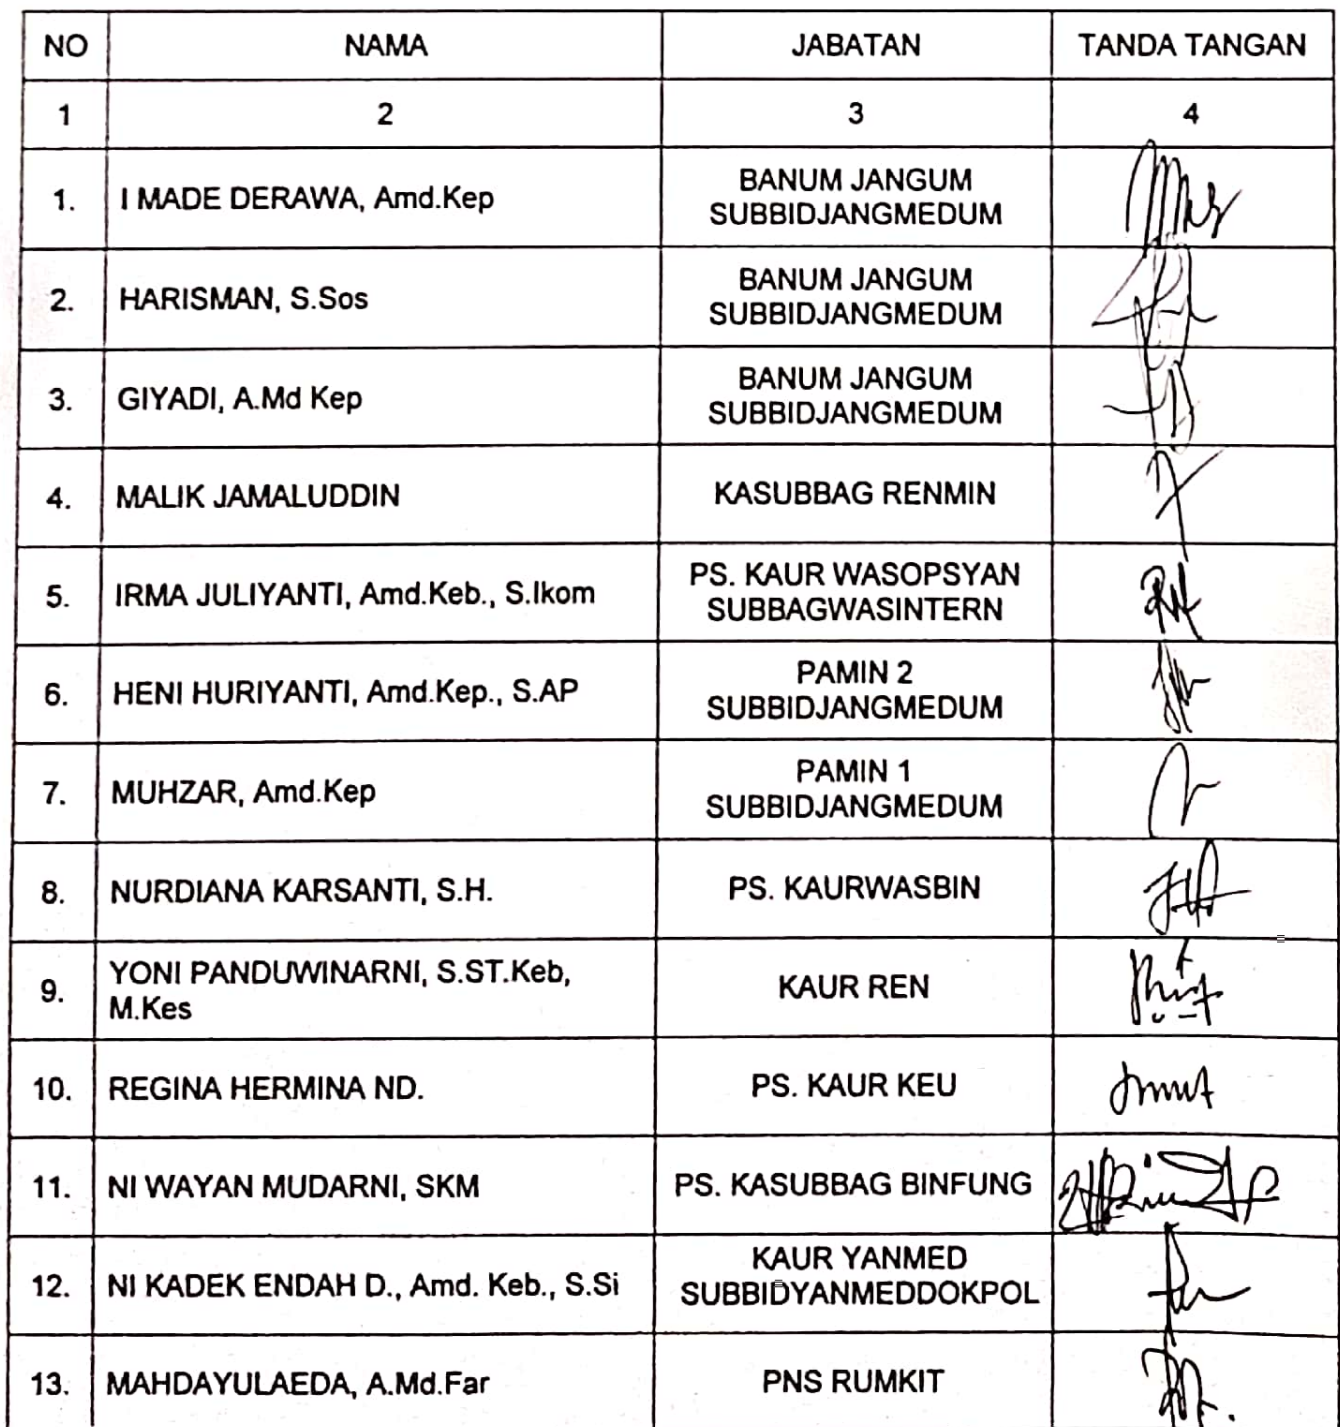 NO NAMA JABATAN TANDA TANGAN
1 2 3 4
1. I MADE DERAWA, Amd.Kep BANUM JANGUM
SUBBIDJANGMEDUM
2. HARISMAN, S.Sos BANUM JANGUM
SUBBIDJANGMEDUM
3. GIYADI, A.Md Kep BANUM JANGUM
SUBBIDJANGMEDUM
4. MALIK JAMALUDDIN KASUBBAG RENMIN
5. IRMA JULIYANTI, Amd.Keb., S.Ikom PS. KAUR WASOPSYAN
SUBBAGWASINTERN
6. HENI HURIYANTI, Amd.Kep., S.AP PAMIN 2
SUBBIDJANGMEDUM
7. MUHZAR, Amd.Kep PAMIN 1
SUBBIDJANGMEDUM
8. NURDIANA KARSANTI, S.H. PS. KAURWASBIN
9. YONI PANDUWINARNI, S.ST.Keb,
M.Kes KAUR REN
10. REGINA HERMINA ND. PS. KAUR KEU
11. NI WAYAN MUDARNI, SKM PS. KASUBBAG BINFUNG
12. NI KADEK ENDAH D., Amd. Keb., S.Si KAUR YANMED
SUBBIDYANMEDDOKPOL
13. MAHDAYULAEDA, A.Md.Far PNS RUMKIT